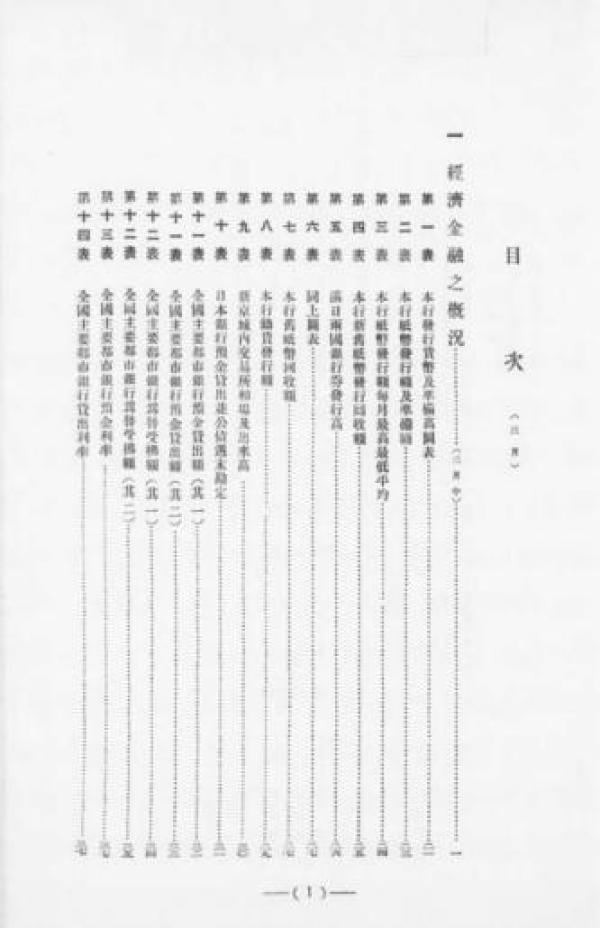 目次（三月）
一 經濟金融之概況（二月中）一
第一表 本行發行貨幣及準備高圖表 二
第二表 本行紙幣發行額及準備額 三
第三表 本行紙幣發行額每月最高最低平均 四
第四表 本行新舊紙幣發行回收額 五
第五表 滿日兩國銀行券發行高 六
第六表 同上圖表 七
第七表 本行舊紙幣回收額
第八表 本行鑄貨發行額
第九表 新京城內交易所相場及出來高
第十表 日本銀行預金貸出並公債週末勘定
第十一表 全國主要都市銀行預金貸出額（其一）
第十一表 全國主要都市銀行預金貸出額（其二）
第十二表 全國主要都市銀行爲替受拂額（其一）
第十二表 全國主要都市銀行爲替受拂額（其二）
第十三表 全國主要都市銀行預金利率
第十四表 全國主要都市銀行貸出利率
（1）